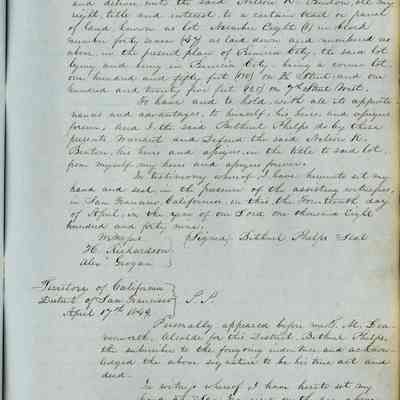 and deliver unto the said Nelson K. Benton, all my
right title and interest, to a certain tract or parcel
of land, known as lot Number Eight (8) in block
number forty seven (47) as laid down and numbered as
above, in the present plan of Benicia City, the said lot
lying and being in Benicia City, being a corner lot
one hundred and fifty feet (150) on Street and one
hundred and twenty five feet (125) on Street West.
To have and to hold, with all its appurte-
nances and advantages, to himself, his heirs and assigns
forever, And I the said Bethuel Phelps do by these
presents Warrant and Defend the said Nelson K.
Benton, his heirs and assigns, in the title to said lot,
from myself my heirs and assigns forever.
In testimony whereof I have hereunto set my
hand and seal in the presence of the assisting witnesses,
in San Francisco California, in this the Fourteenth day
of April, in the year of our Lord one thousand Eight
hundred and forty nine.
Witness } (Signed) Bethuel Phelps Seal
H. Richardson
Alex Grogan
Territory of California }
District of San Francisco } S.S.
April 17th 1849
Personally appeared before me T. M. Lea-
venworth Alcalde for this District, Bethuel Phelps,
the subscriber to the foregoing indenture and acknow-
ledged the above signature to be his true act and
deed.
In witness whereof I have hereto set my